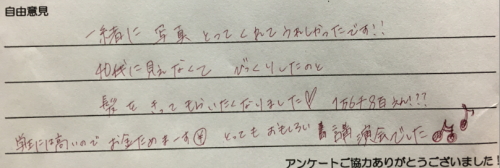 自由意見
一緒に 写真 とってくれてうれしかったです!!
40代に見えなくて びっくりしたのと
髪をきってもらいたくなりました♡ 1万6千8百えん!??
学生には高いので お金ためまーす とってもおもしろい 講演会でした♫
アンケートご協力ありがとうございました!